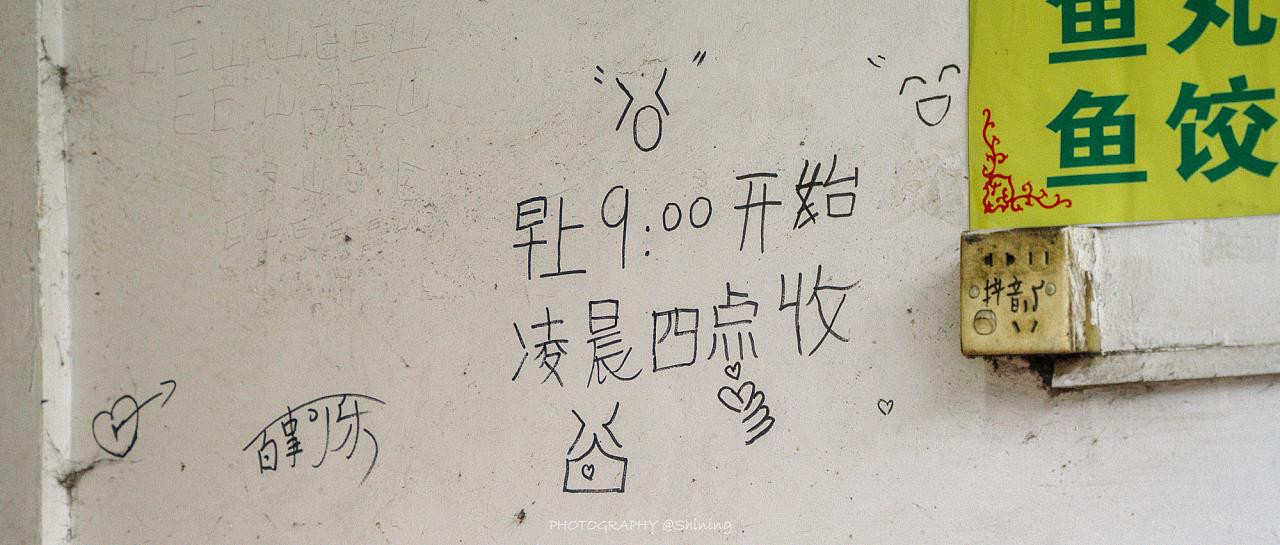 鱼丸
鱼饺
早上9:00开始
凌晨四点收
抖音
百事可乐
PHOTOGRAPHY @Shining